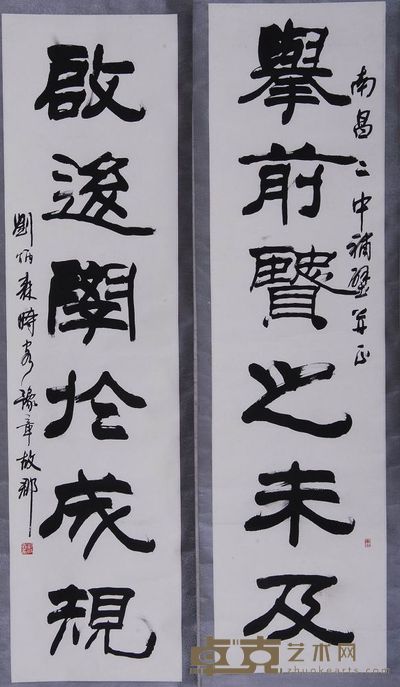 南昌二中補壁并正
擧前賢之未及
啟後學於成規
劉伯森時客豫章故郡
卓克艺术网
zhuokearts.com